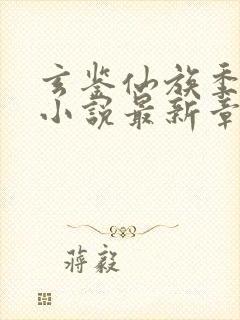 玄鉴仙族季
小說最新章
蒋毅